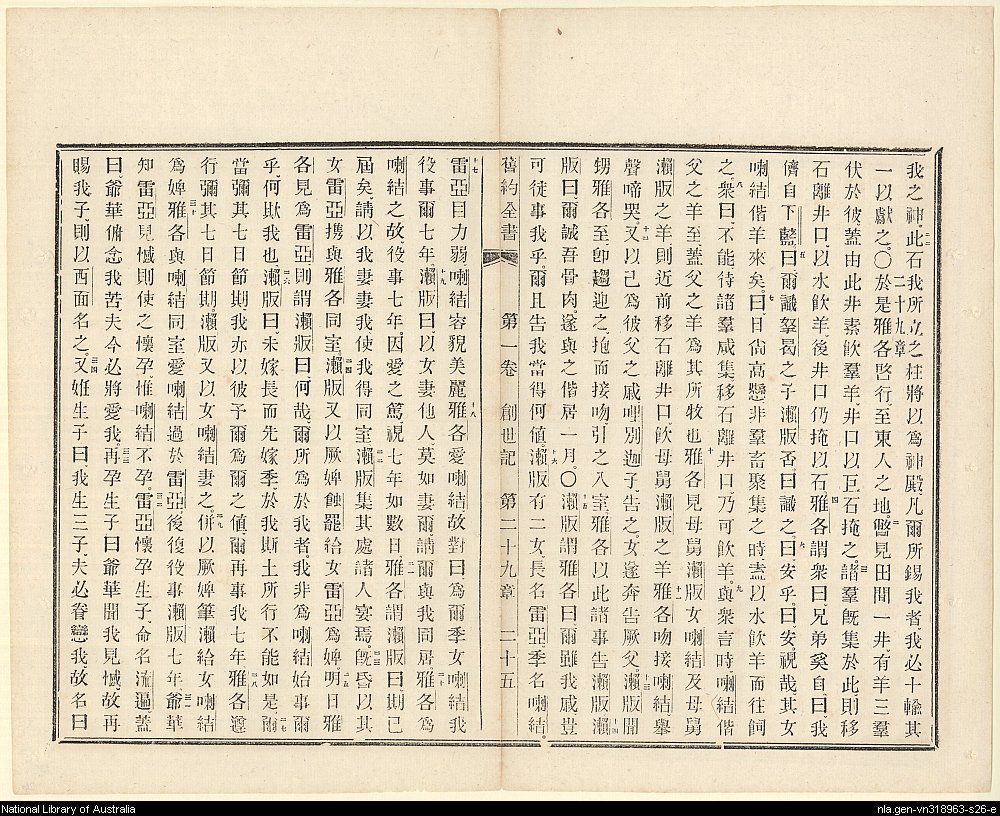 我之神、此石我所立之柱將以爲神殿、凡爾所錫我者、我必十輸其
一以獻之。〇於是雅各啓行、至東人之地。瞥見田間一井、有羊三羣
二十九章
伏於彼、蓋由此井素飲羣羊、井口以巨石掩之、諸羣既集於此則移
石離井口、以水飲羊、後井口仍掩以石、雅各謂衆曰、兄弟奚自、曰、我
儕自下藍、曰、爾識拏曷之子瀨版否、曰、識之、曰、安乎、曰、安、視哉、其女
喇結偕羊來矣。曰、日尚高懸、非羣畜聚集之時、盍以水飲羊而往飼
之、衆曰、不能、待諸羣咸集移石離井口、乃可飲羊。與衆言時喇結偕
父之羊至、蓋父之羊爲其所牧也。雅各見母舅瀨版女喇結及母舅
瀨版之羊則近前移石離井口飲母舅瀨版之羊、雅各吻接喇結、舉
聲啼哭。又以己爲彼父之戚哩別迦子、告之、女遂奔告厥父、瀨版聞
甥雅各至、卽趨迎之、抱而接吻、引之入室、雅各以此諸事告瀨版、瀨
版曰、爾誠吾骨肉、遂與之偕居一月。〇瀨版謂雅各曰、爾雖我戚、豈
可徒事我乎、爾且告我當得何値。瀨版有二女、長名雷亞、季名喇結。
舊約全書 第一卷 創世記 第二十九章 二十五
雷亞目力弱、喇結容貌美麗、雅各愛喇結、故對曰、爲爾季女喇結我
役事爾七年。瀨版曰、以女妻他人、莫如妻爾、請爾與我同居、雅各爲
喇結之故、役事七年、因愛之篤、視七年如數日、雅各謂瀨版曰、期已
屆矣、請以我妻妻我、使我得同室、瀨版集其處諸人宴焉。既昏以其
女雷亞攜與雅各同室、瀨版又以厥婢蝕罷給女雷亞爲婢。明日雅
各見爲雷亞、則謂瀨版曰、何哉、爾所爲於我者、我非爲喇結始事爾
乎、何欺我也、瀨版曰、未嫁長而先嫁季、於我斯土所行不能如是、爾
當彌其七日節期、我亦以彼予爾、爲爾之値、爾再事我七年、雅各遵
行、彌其七日節期。瀨版又以女喇結妻之。併以厥婢篳瀨給女喇結
爲婢、雅各與喇結同室、愛喇結過於雷亞、後復役事瀨版七年、爺華
知雷亞見憾、則使之懷孕、惟喇結不孕。雷亞懷孕生子、命名流遍、蓋
曰、爺華俯念我苦、夫今必將愛我。再孕生子曰、爺華聞我見憾、故再
賜我子、則以西面名之、又妊生子、曰、我生三子、夫必眷戀我、故名曰